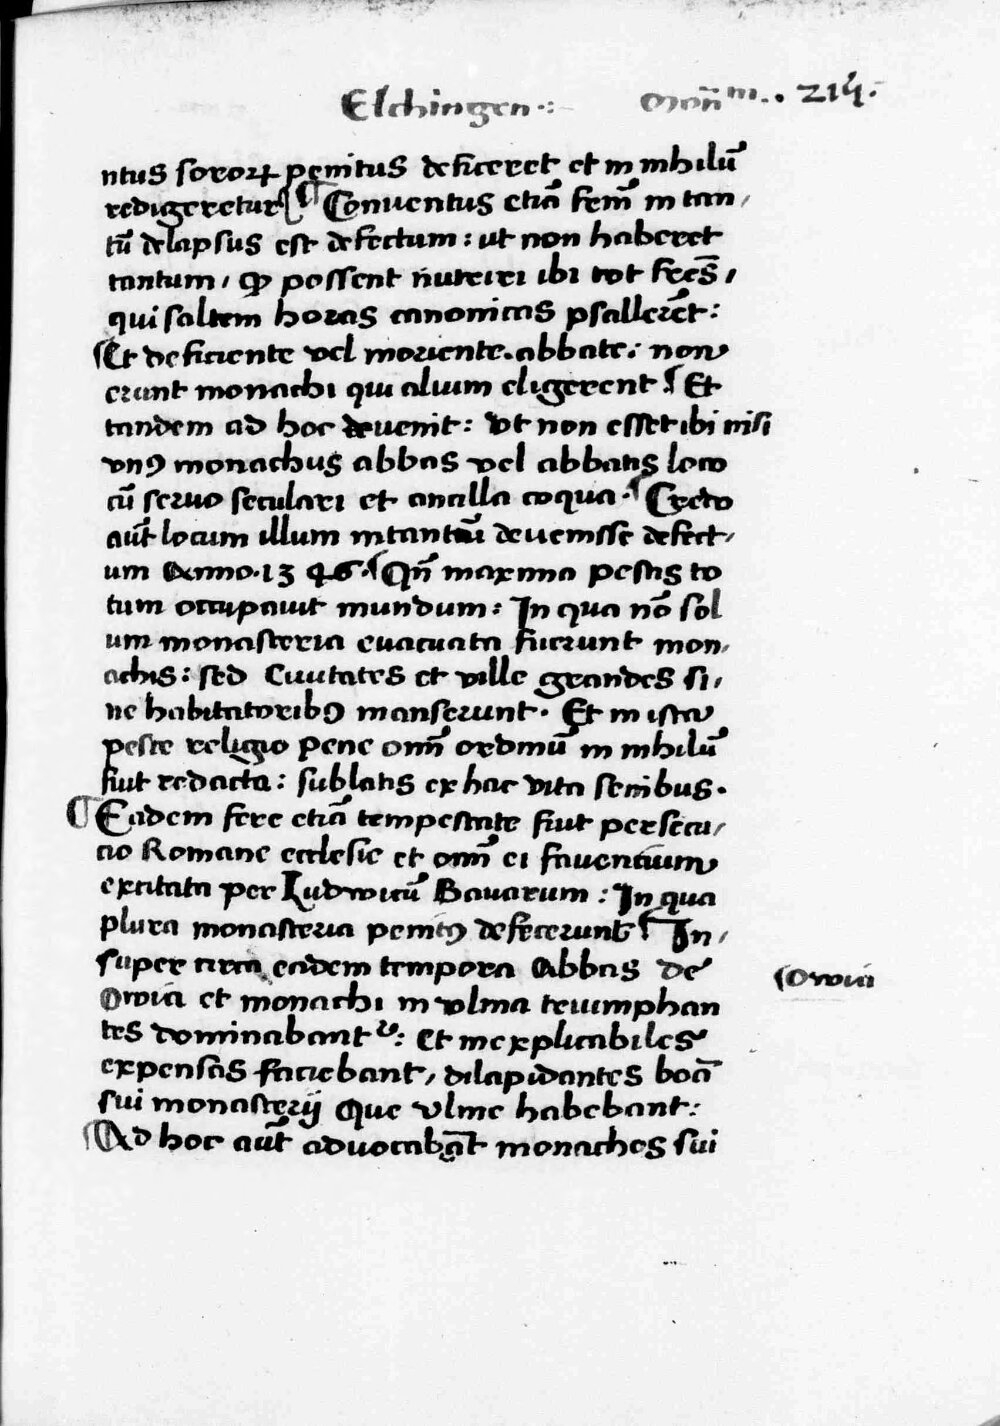 Elchingen·:~ Monm̄.. 214.
ntus sororꝝ penitus deficeret et in nihilū
redigeretur ¶ Conuentus etiā fem̄ in tan/
tū delapsus est defectum: ut non haberet
tantum, ꝙ possent nutriri ibi tot fr̄es,
qui saltem horas canonicas psallerēt:
¶Et deficiente vel moriente abbate: non
erant monachi qui alium eligerent ¶ Et
tandem ad hoc deuenit: vt non esset ibi nisi
vnꝰ monachus abbas vel abbatis loco
cū seruo seculari et ancilla coqua. ¶Credo
aūt locum illum intantum deuenisse defect/
um Anno. 1346. ¶Qn̄ maxima pestis to
tum occupauit mundum: In qua nō sol
um monasteria euacuata fuerunt mon/
achis: sed Ciuitates et ville grandes si/
ne habitatoribꝰ manserunt. Et in ista
peste religio pene om̄ ordinū in nihilū
fuit redacta: sublatis ex hac vita senibus.
¶Eadem fere etiā tempestate fuit persecu/
cio Romane ecclesie et om̄ ei fauentium
excitata per Ludwicū Bauarum: In qua
plura monasteria penitꝰ defecerunt ¶ In/
super circa eadem tempora Abbas de
Owia et monachi in vlma triumphan
tes dominabantr: Et inexplicabiles
expensas faciebant, dilapidantes boā
sui monasterij Que vlme habebant:
¶Ad hoc aūt aduocabāt monachos sui
¶Owia